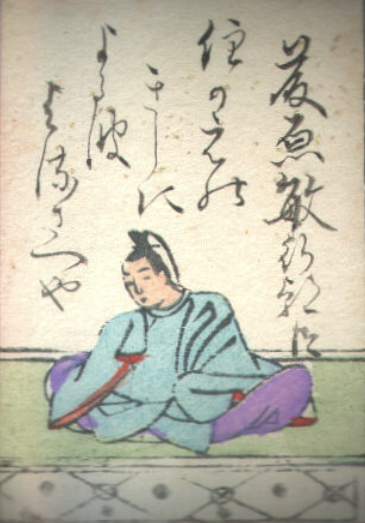 藤原敏行朝臣
住のえの
きしに
よる波
よるさへや